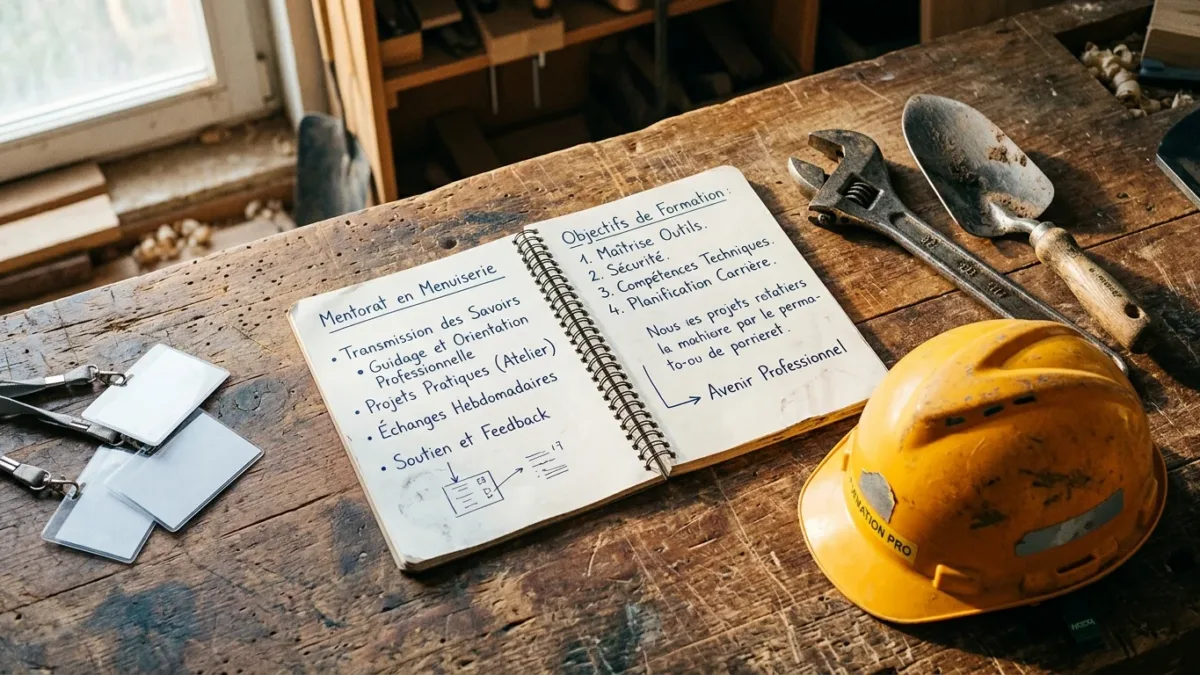 Mentorat en Menuiserie
• Transmission des Savoirs
• Guidage et Orientation
Professionnelle
• Projets Pratiques (Atelier)
• Échanges Hebdomadaires
• Soutien et Feedback
Objectifs de Formation:
1. Maîtrise Outils.
2. Sécurité.
3. Compétences Techniques.
4. Planification Carrière.
Nous ies projets rotatiers
la machiere par le perma-
to-ou de porrieret.
Avenir Professionnel
MATION PRO